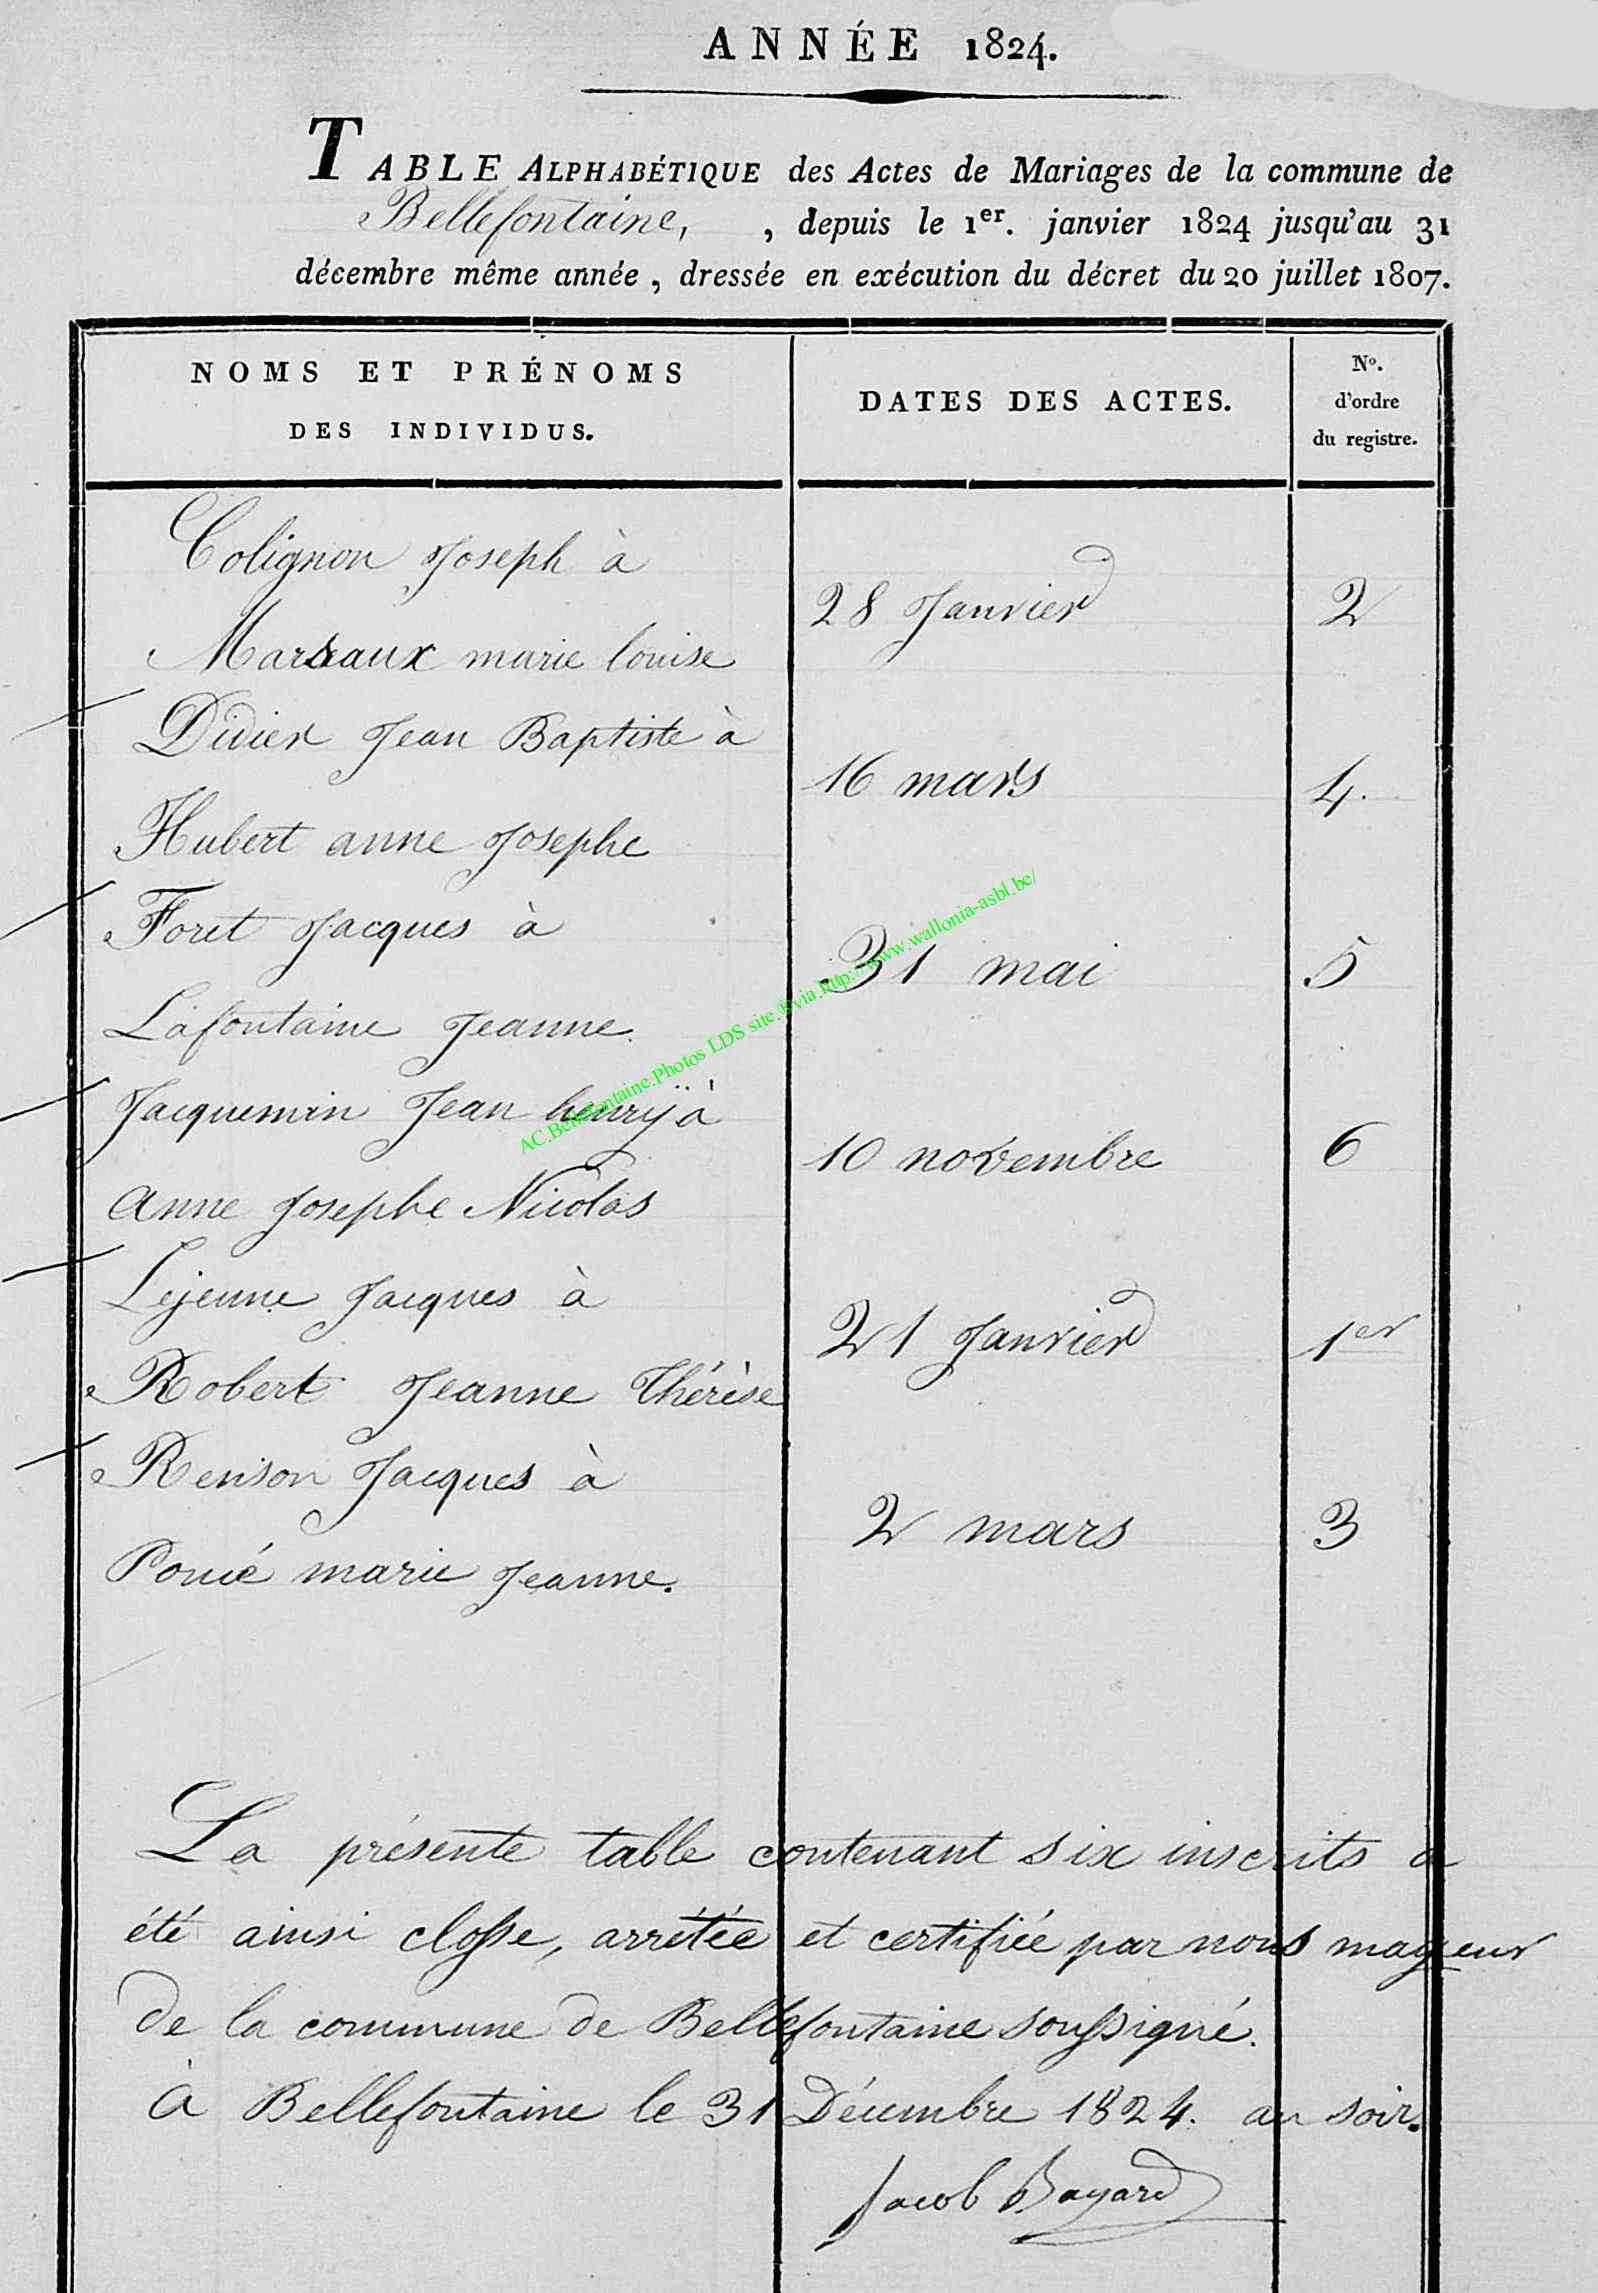 ANNÉE 1824.
TABLE ALPHABÉTIQUE des Actes de Mariages de la commune de
Bellefontaine, , depuis le 1er. janvier 1824 jusqu'au 31
décembre même année, dressée en exécution du décret du 20 juillet 1807.
NOMS ET PRÉNOMS
DES INDIVIDUS.
DATES DES ACTES.
No.
d'ordre
du registre.
Colignon Joseph à
28 Janvier 2
Marsaux marie louise
Didier Jean Baptiste à
16 mars 4.
Hubert anne Josephe
Foret Jacques à
31 mai 5
Lafontaine Jeanne.
Jacquemin Jean henrÿ à
10 novembre 6
anne Josephe Nicolas
Lejeune Jacques à
21 Janvier 1er
Robert Jeanne Thérèse
Renson Jacques à
2 mars 3
marie Jeanne.
La présente table contenant six inscrits a
été ainsi closse, arrétée et certifiée par nous mayeur
de la commune de Bellefontaine soussigné.
à Bellefontaine le 31 Décembre 1824. au soir.
Jacob Bayard
AC.Bellefontaine.Photos LDS site via http://www.wallonia-asbl.be/